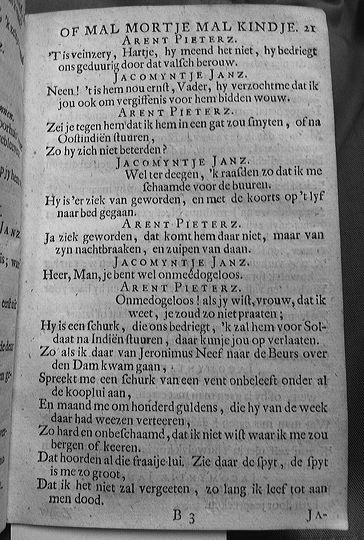 OF MAL MORTJE MAL KINDJE. 21
ARENT PIETERZ.
'Tis veinzery, Hartje, hy meend het niet, hy bedriegt
ons geduurig door dat valsch berouw.
JACOMYNTJE JANZ.
Neen! 't is hem nou ernst, Vader, hy verzocht me dat ik
jou ook om vergiffenis voor hem bidden wouw.
ARENT PIETERZ.
Zei je tegen hem dat ik hem in een gat zou smyten, of na
Oostindiën stuuren,
Zo hy zich niet beterden?
JACOMYNTJE JANZ.
Wel ter deegen, 'k raasden zo dat ik me
schaamde voor de buuren.
Hy is 'er ziek van geworden, en met de koorts op 't lyf
naar bed gegaan.
ARENT PIETERZ.
Ja ziek geworden, dat komt hem daar niet, maar van
zyn nachtbraaken, en zuipen van daan.
JACOMYNTJE JANZ.
Heer, Man, je bent wel onmeêdogeloos.
ARENT PIETERZ.
Onmedogeloos! als jy wist, vrouw, dat ik
weet, je zoud zo niet praaten;
Hy is een schurk, die ons bedriegt, 'k zal hem voor Sol-
daat na Indiën stuuren, daar kun je jou op verlaaten.
Zo als ik daar van Jeronimus Neef naar de Beurs over
den Dam kwam gaan,
Spreekt me een schurk van een vent onbeleeft onder al
de kooplui aan,
En maand me om honderd guldens, die hy van de week
daar had weezen verteeren,
Zo hard en onbeschaamd, dat ik niet wist waar ik me zou
bergen of keeren.
Dat hoorden al die fraaije lui. Zie daar de spyt, de spyt
is me zo groot,
Dat ik het niet zal vergeeten, zo lang ik leef tot aan
men dood.
B 3 JA-